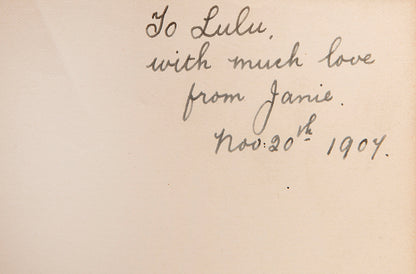 To Lulu,
with much love
from Janie.
Nov: 20th 1907.